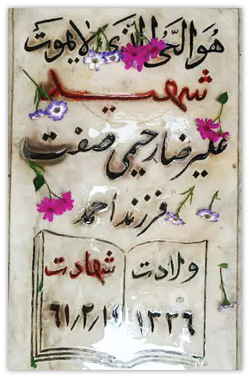 هوالحی الذی لایموت
شهید
علیرضا رحیمی صفت
فرزند احمد
ولادت شهادت
۱۳۳۶